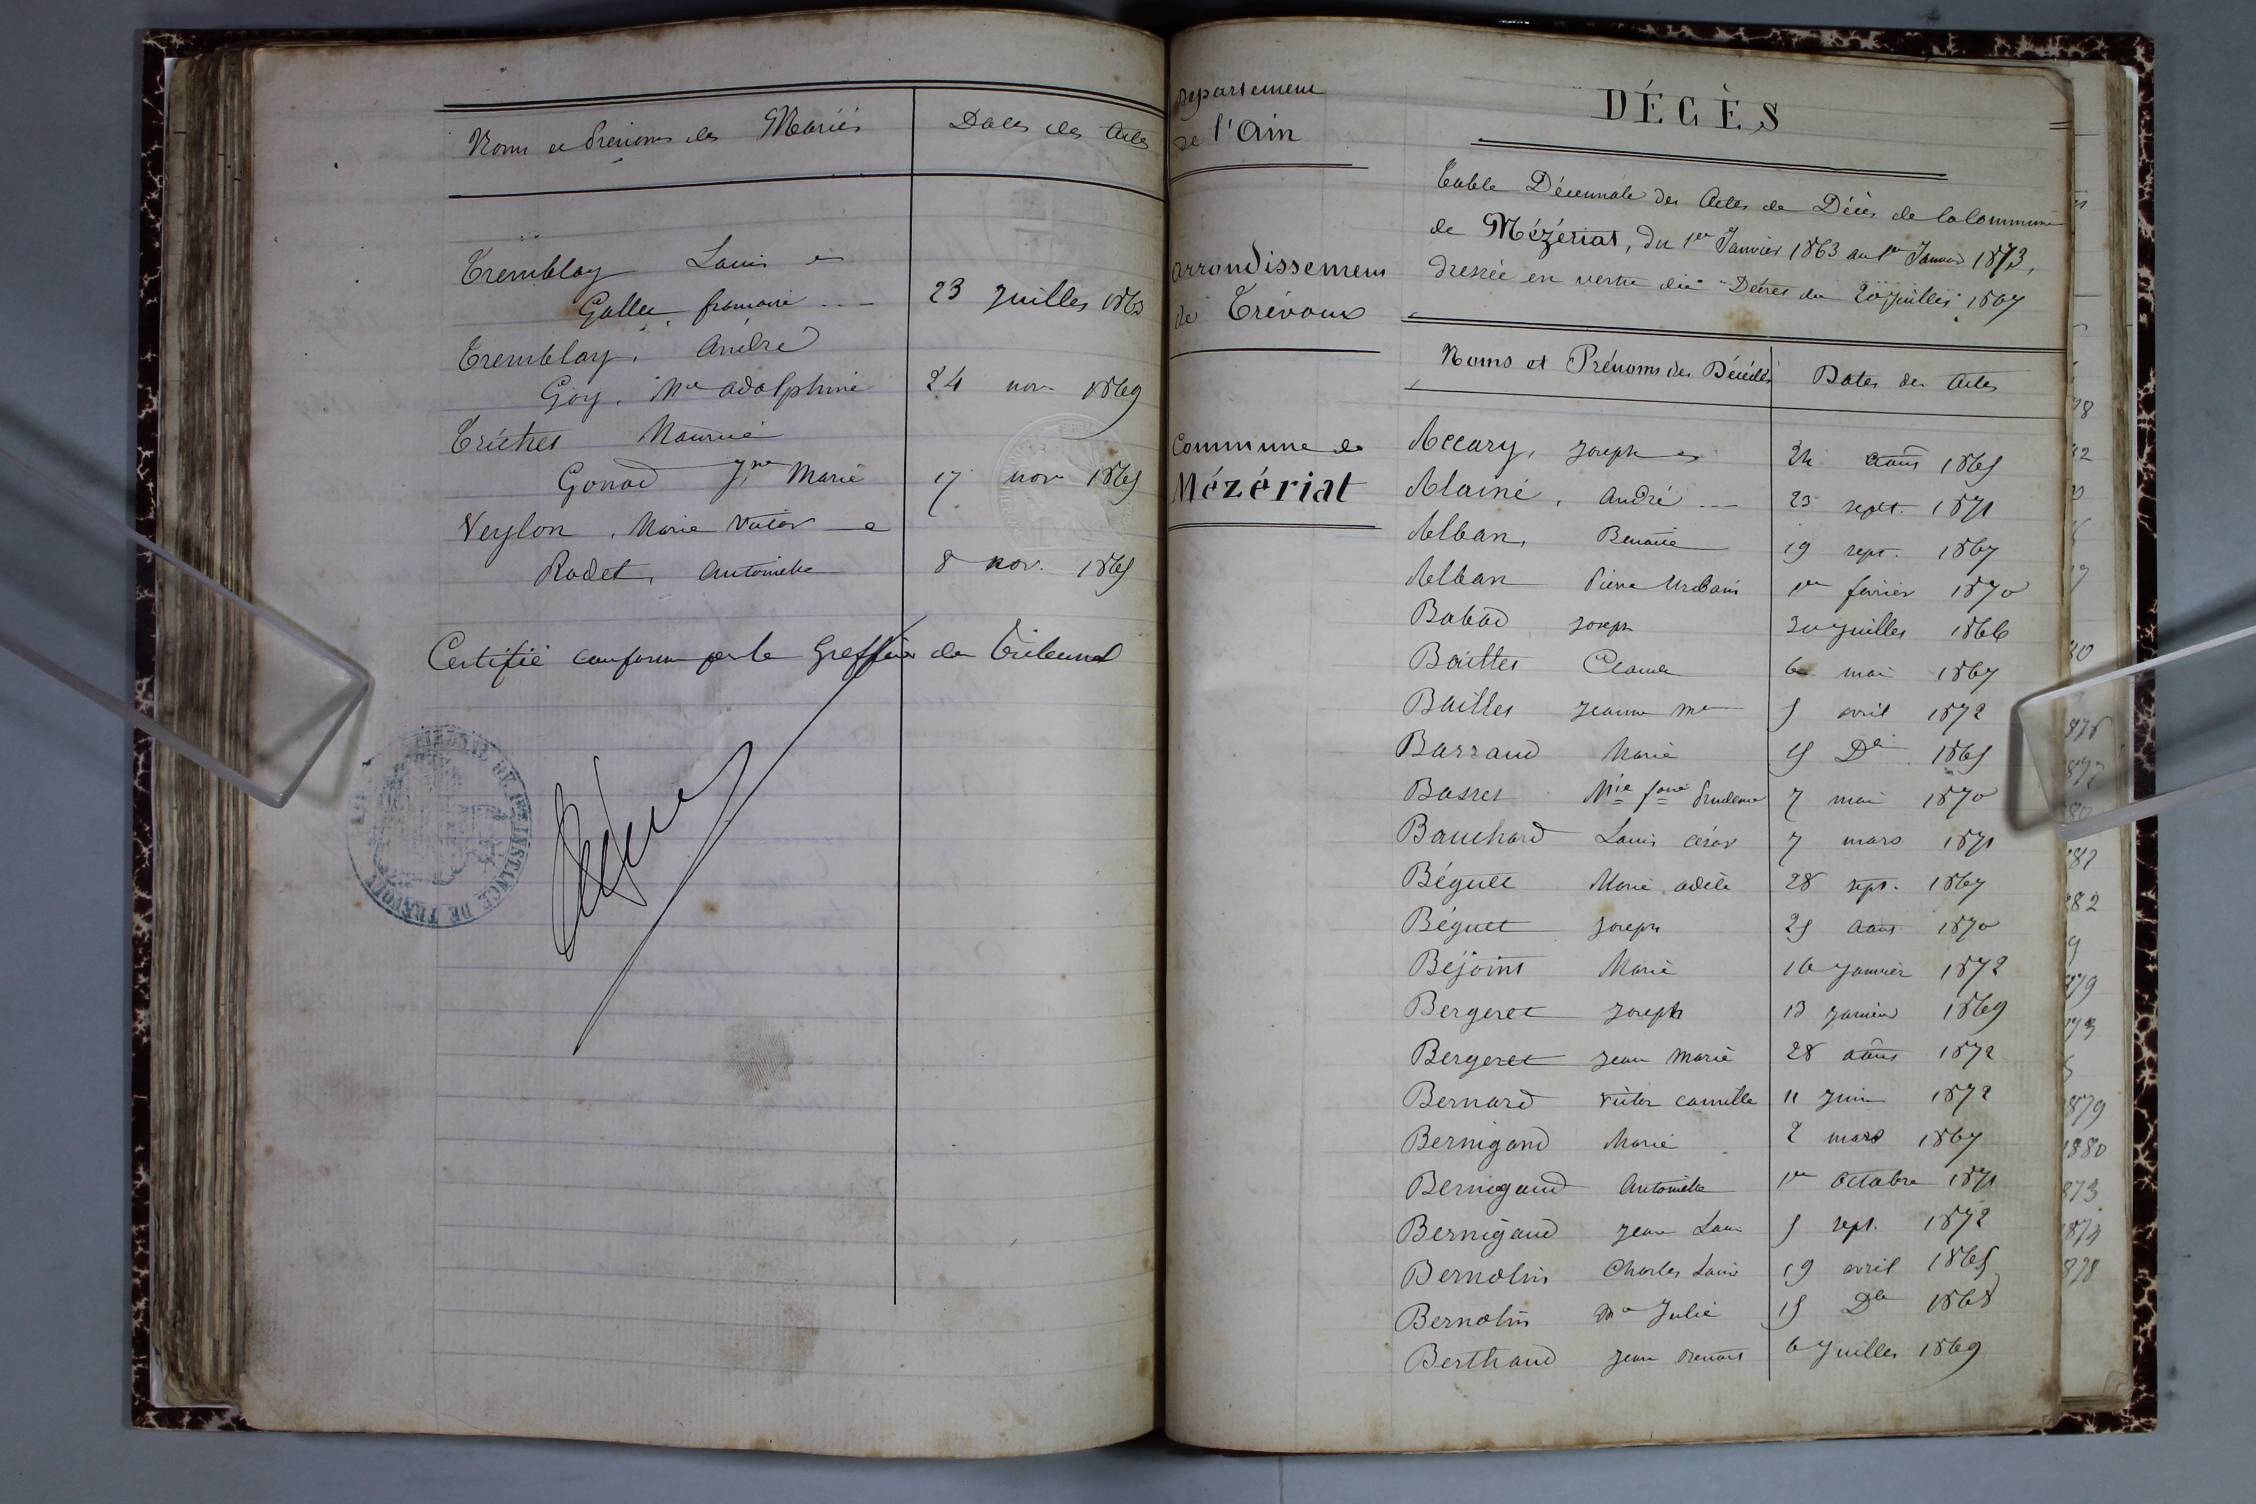 Noms et Prénoms des Mariés
Dates des Actes
Tremblay Louis et
Gallet françoise
23 Juillet 1863
Tremblay, André
Goy, Mie Adolphine 24 nov 1869
Gonod Jne Marie 17 nov 1865
Veylon, Marie Victor
Rodet, Antoinette 8 nov. 1865
Certifié conforme par le Greffier du Tribunal
INSTANCE DE TRÉVOUX
Département
de l'Ain
Arrondissement
de Trévoux
Commune de
Mézériat
DÉCÈS
Table Décennale des Actes de Décès de la Commune
de Mézériat, du 1er Janvier 1863 au 1er Janvier 1873,
dressée en vertu du Décret du 20 Juillet 1807
Noms et Prénoms des Décédés Dates des Actes
Accary, Joseph 24 août 1865
Alainé, André 25 sept. 1871
Alban, Benoite 19 sept. 1867
Alban Pierre Urbain 1er février 1870
Babad Joseph 30 Juillet 1866
Baillet Claude 6 mai 1867
Baillet Jeanne Mie 5 avril 1872
Barraud Marie 15 Dbre 1865
Basset Mie fçoise Prudence 7 mai 1870
Bauchard Louis César 7 mars 1871
Béguet Marie Adèle 28 sept. 1867
Béguet Joseph 25 août 1870
Béjoint Marie 16 Janvier 1872
Bergeret Joseph 13 Janvier 1869
Bergeret Jean Marie 28 août 1872
Bernard Victor Camille 11 Juin 1872
Bernigaud Marie 2 mars 1867
Bernigaud Antoinette 1er Octobre 1871
Bernigaud Jean Louis 5 sept. 1872
Bernolin Charles Louis 19 avril 1865
Bernolin Mie Julie 15 Dbre 1868
Berthaud Jean Benoit 6 Juillet 1869